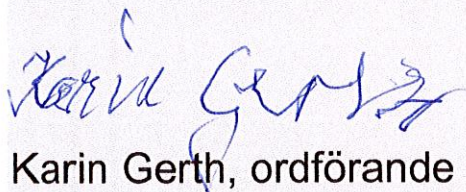 Karin Gerth
Karin Gerth, ordförande